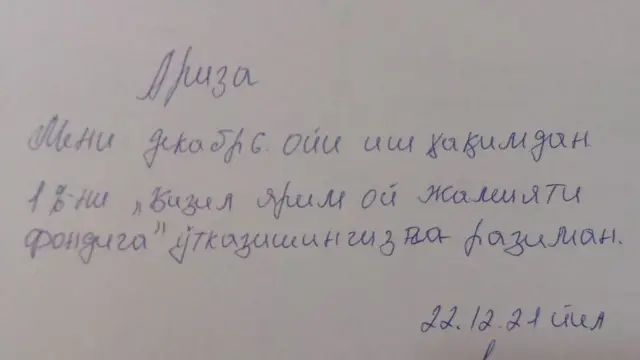 Ариза
Мени декабрь ойи иш ҳақимдан
1%-ни „Қизил ярим ой жамияти
фондига" ўтказишингизга розиман.
22.12.21 йил